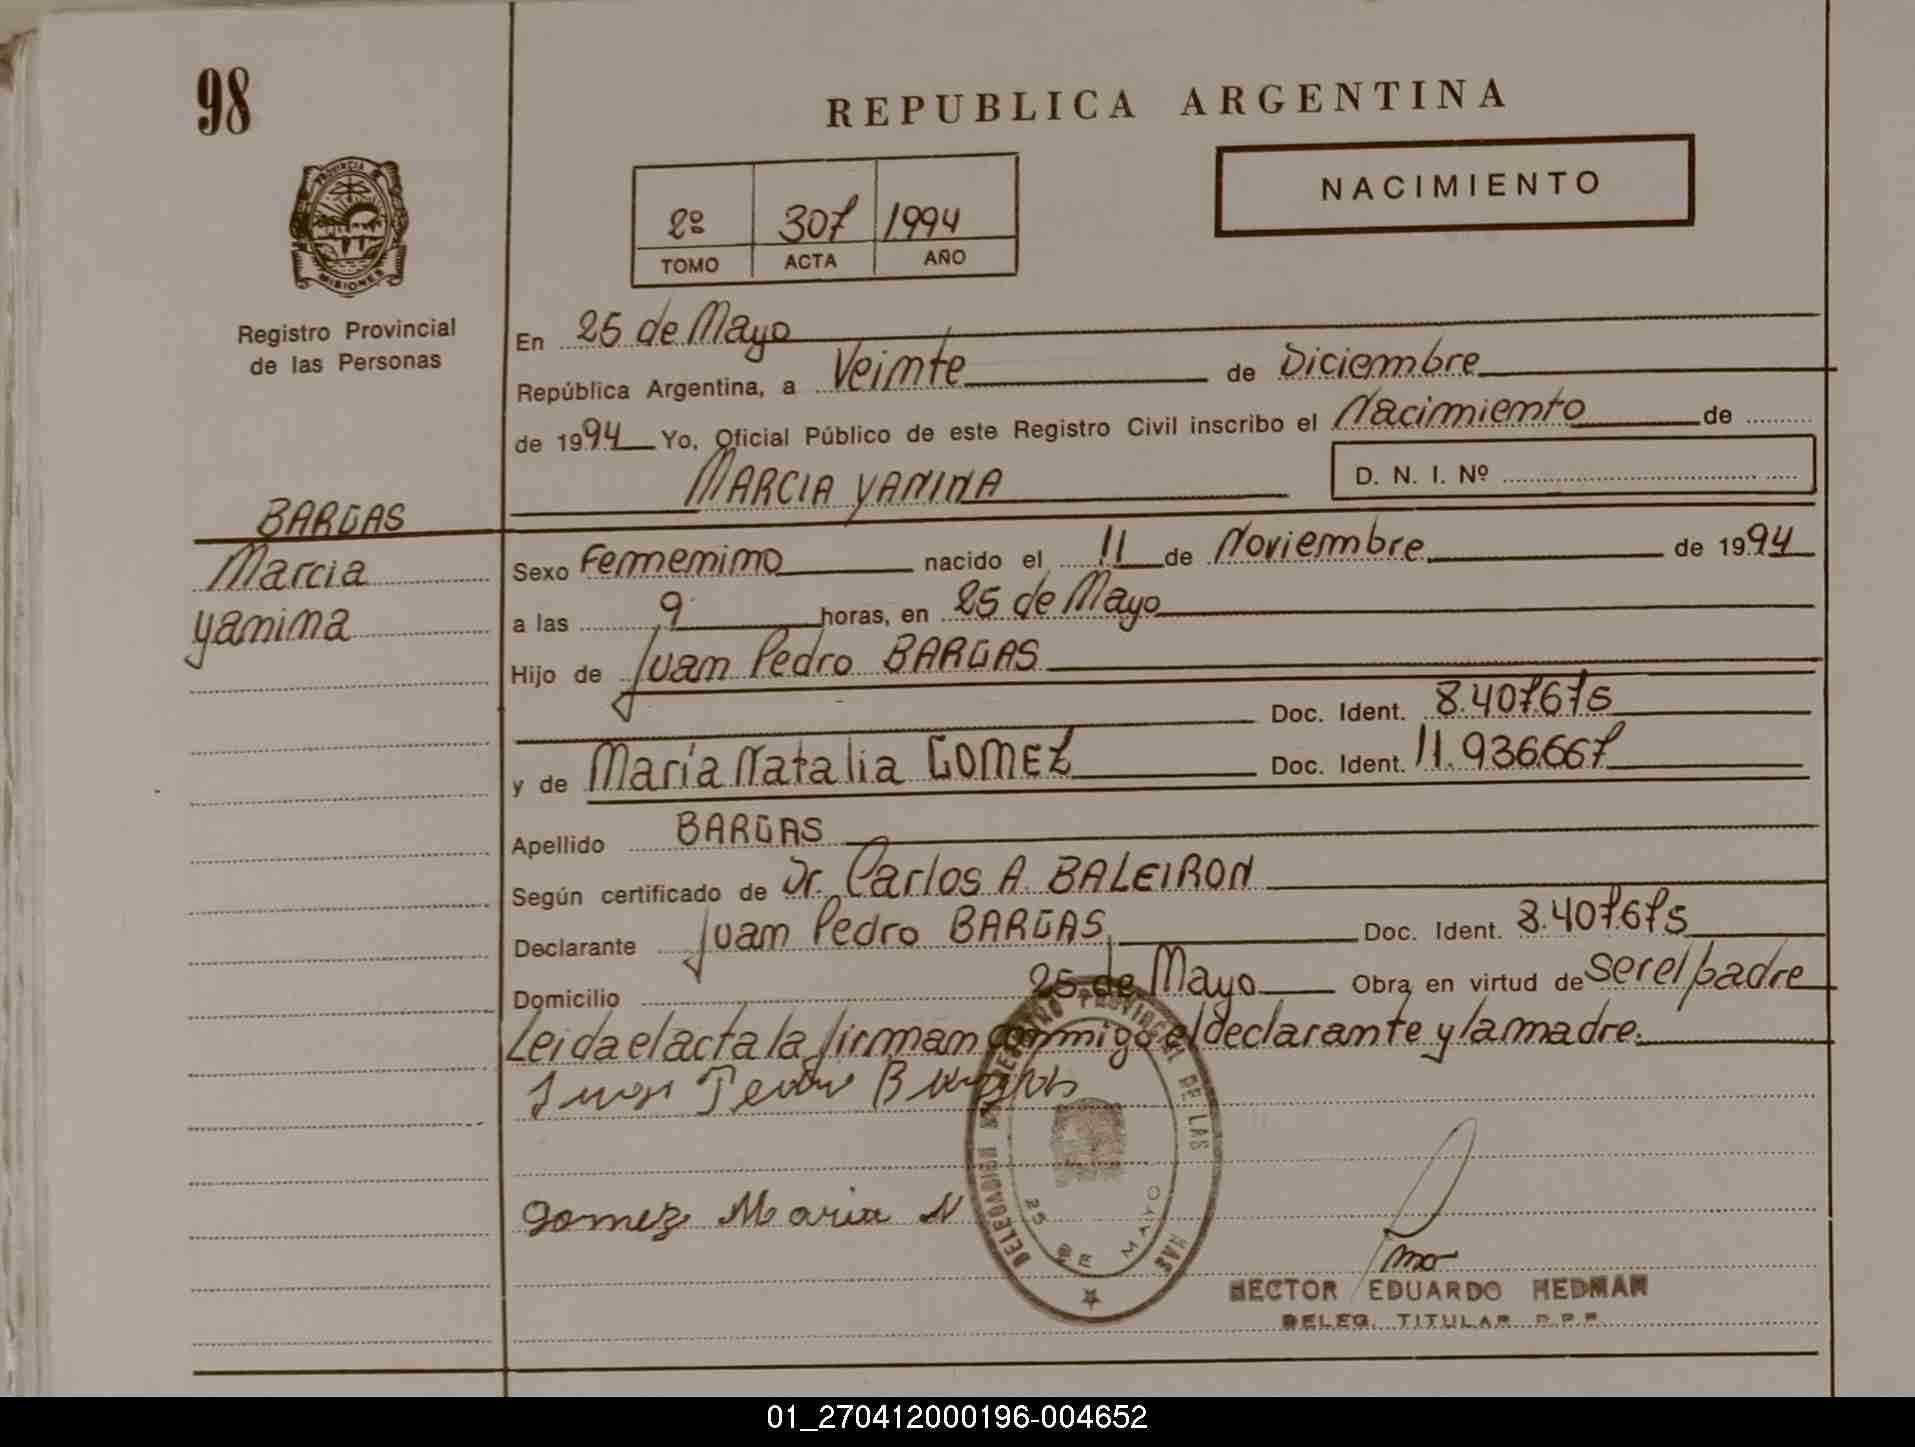 98
REPUBLICA ARGENTINA
NACIMIENTO
2º 307 1994
TOMO ACTA AÑO
PROVINCIA DE
MISIONES
Registro Provincial
de las Personas
En 25 de Mayo
República Argentina, a Veinte de Diciembre
de 1994 Yo, Oficial Público de este Registro Civil inscribo el Nacimiento de
MARCIA YANINA D. N. I. Nº
BARGAS
Marcia
Yanina
Sexo Femenino nacido el 11 de Noviembre de 1994
a las 9 horas, en 25 de Mayo
Hijo de Juan Pedro BARGAS
Doc. Ident. 8.407.675
y de María Natalia GOMEZ Doc. Ident. 11.936.667
Apellido BARGAS
Según certificado de Dr. Carlos A. BALEIRON
Declarante Juan Pedro BARGAS Doc. Ident. 8.407.675
Domicilio 25 de Mayo Obra en virtud de ser el padre
Leida el acta la firman conmigo el declarante y la madre.
Juan Pedro Bargas
Gomez Maria N
DELEGACION REGISTRO PROVINCIAL DE LAS
25 DE MAYO
HECTOR EDUARDO HEDMAN
DELEG. TITULAR R.P.P.
01_270412000196-004652